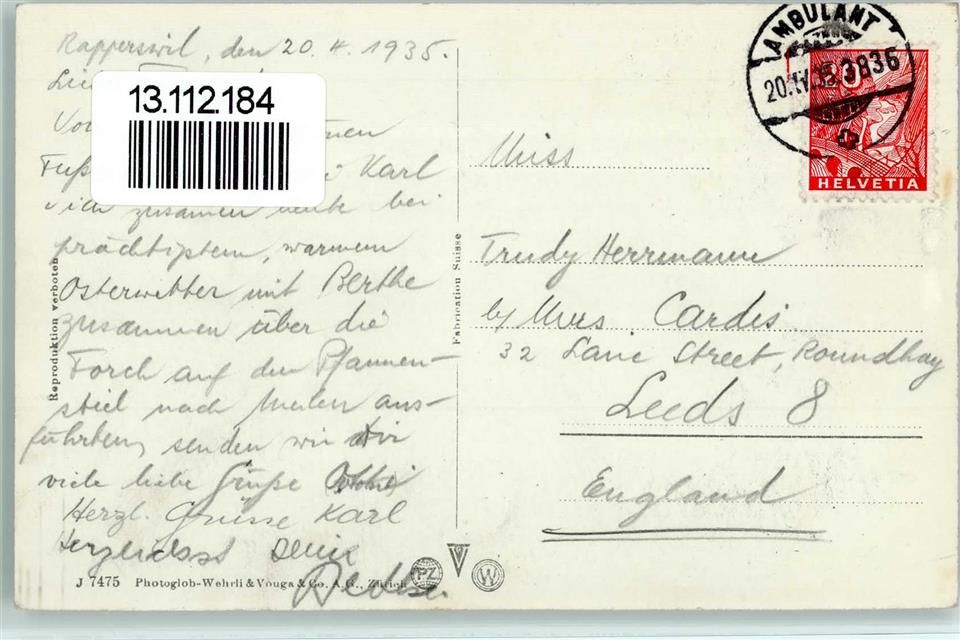 Rapperswil, den 20. 4. 1935.
13.112.184
Karl
ich zusammen heute bei
prächtigstem, warmem
Osterwetter mit Berthe
zusammen über die
Forch auf den Pfannen-
stiel nach Meilen aus-
führten, senden wir Dir
viele liebe Grüße
Herzl. Grüsse Karl
Herzlichst
J 7475 Photoglob-Wehrli & Vouga & Co. A. G., Zürich
PZ
W
Reproduktion verboten
Fabrication Suisse
AMBULANT
20.IV.35. 3836
20
HELVETIA
Miss
Trudy Herrmann
by Mrs. Cardis
32 Lane Street, Roundhay
Leeds 8
England